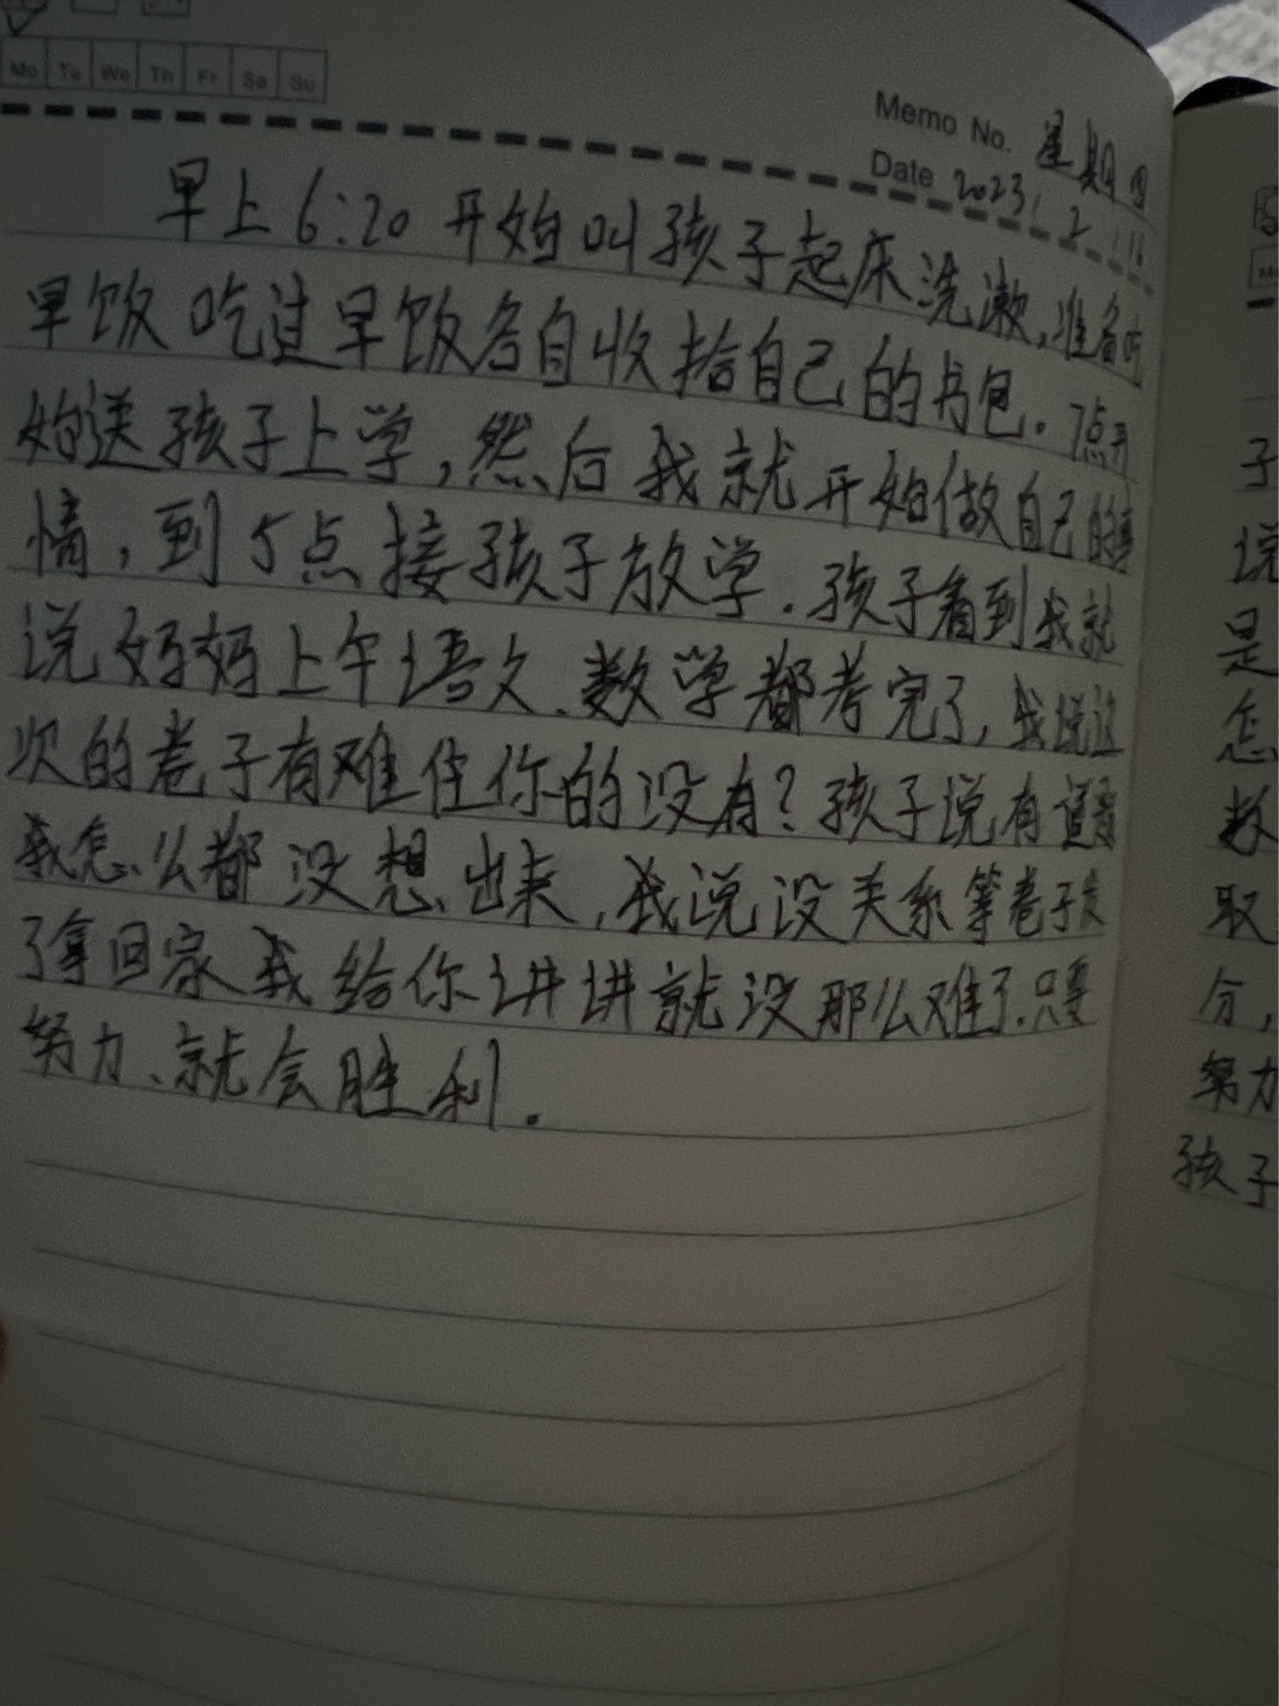 Mo Tu We Th Fr Sa Su
Memo No. 星期四
Date 2023/2/16
早上6:20开始叫孩子起床洗漱,准备吃
早饭 吃过早饭各自收拾自己的书包。7点开
始送孩子上学,然后我就开始做自己的事
情,到5点接孩子放学.孩子看到我就
说妈妈上午语文、数学都考完了,我说这
次的卷子有难住你的没有?孩子说有道题
我怎么都没想出来,我说没关系等卷子发
了拿回家我给你讲讲就没那么难了.只要
努力、就会胜利.
子
说
是
怎
数
取
分,
努力
孩子